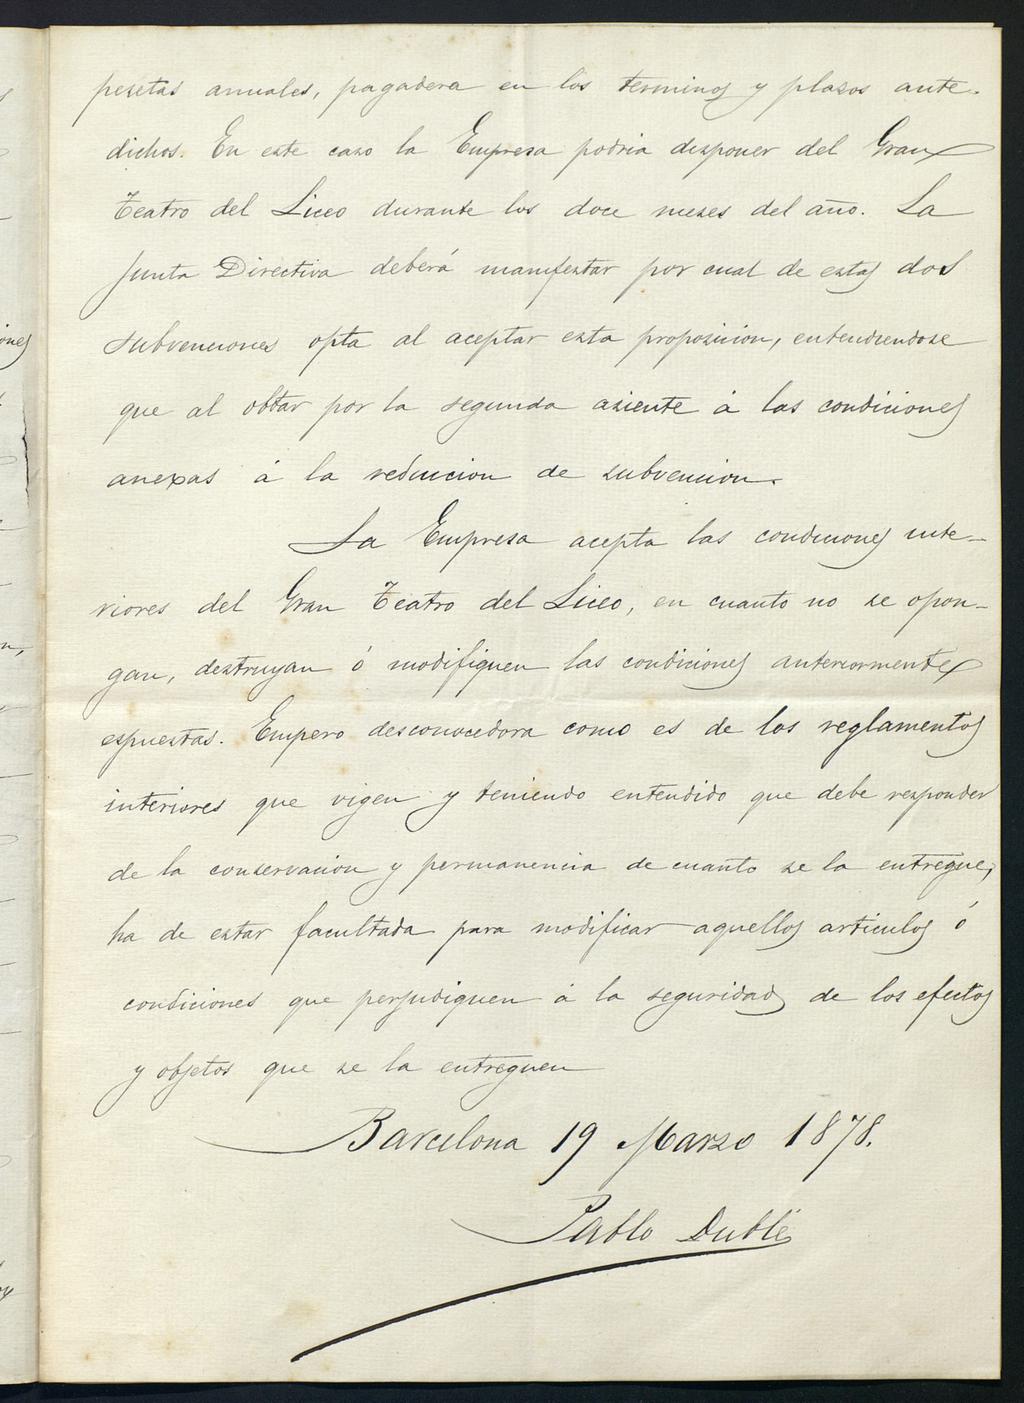 pesetas anuales, pagadera en los terminos y plasos ante-
dichos. En este caso la Empresa podria disponer del Gran
Teatro del Liceo durante los doce meses del año. La
Junta Directiva deberá manifestar por cual de estas dos
subvenciones opta al aceptar esta proposicion, entendiendose
que al obtar por la segunda asiente á las condiciones
anexas á la reduccion de subvencion.
La Empresa acepta las condiciones inte-
riores del Gran Teatro del Liceo, en cuanto no se opon-
gan, destruyan ó modifiquen las condiciones anteriormente
espuestas. Empero desconocedora como es de los reglamentos
interiores que vigen y teniendo entendido que debe responder
de la conservacion y permanencia de cuanto se la entregue,
ha de estar facultada para modificar aquellos articulos ó
condiciones que perjudiquen á la seguridad de los efectos
y objetos que se la entreguen
Barcelona 19 Marzo 1878.
Pablo Dublé